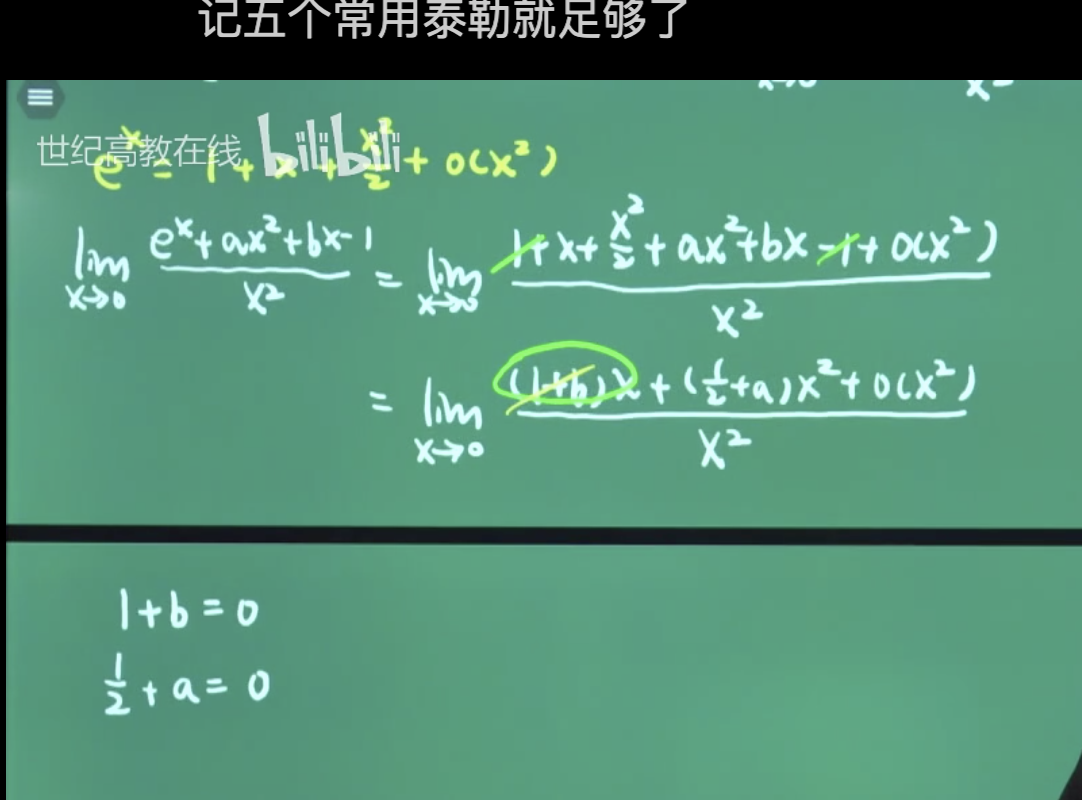 记五个常用泰勒就足够了
世纪高教在线 bilibili
e^x = 1 + x + x²/2 + o(x²)
lim x→0 (e^x + ax² + bx - 1)/x² = lim x→0 (1 + x + x²/2 + ax² + bx - 1 + o(x²))/x²
= lim x→0 ((1+b)x + (1/2 + a)x² + o(x²))/x²
1 + b = 0
1/2 + a = 0